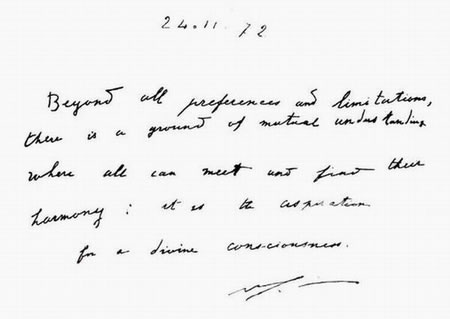 24.11.72
Beyond all preferences and limitations,
there is a ground of mutual understanding
where all can meet and find their
harmony : it is the aspiration
for a divine consciousness.